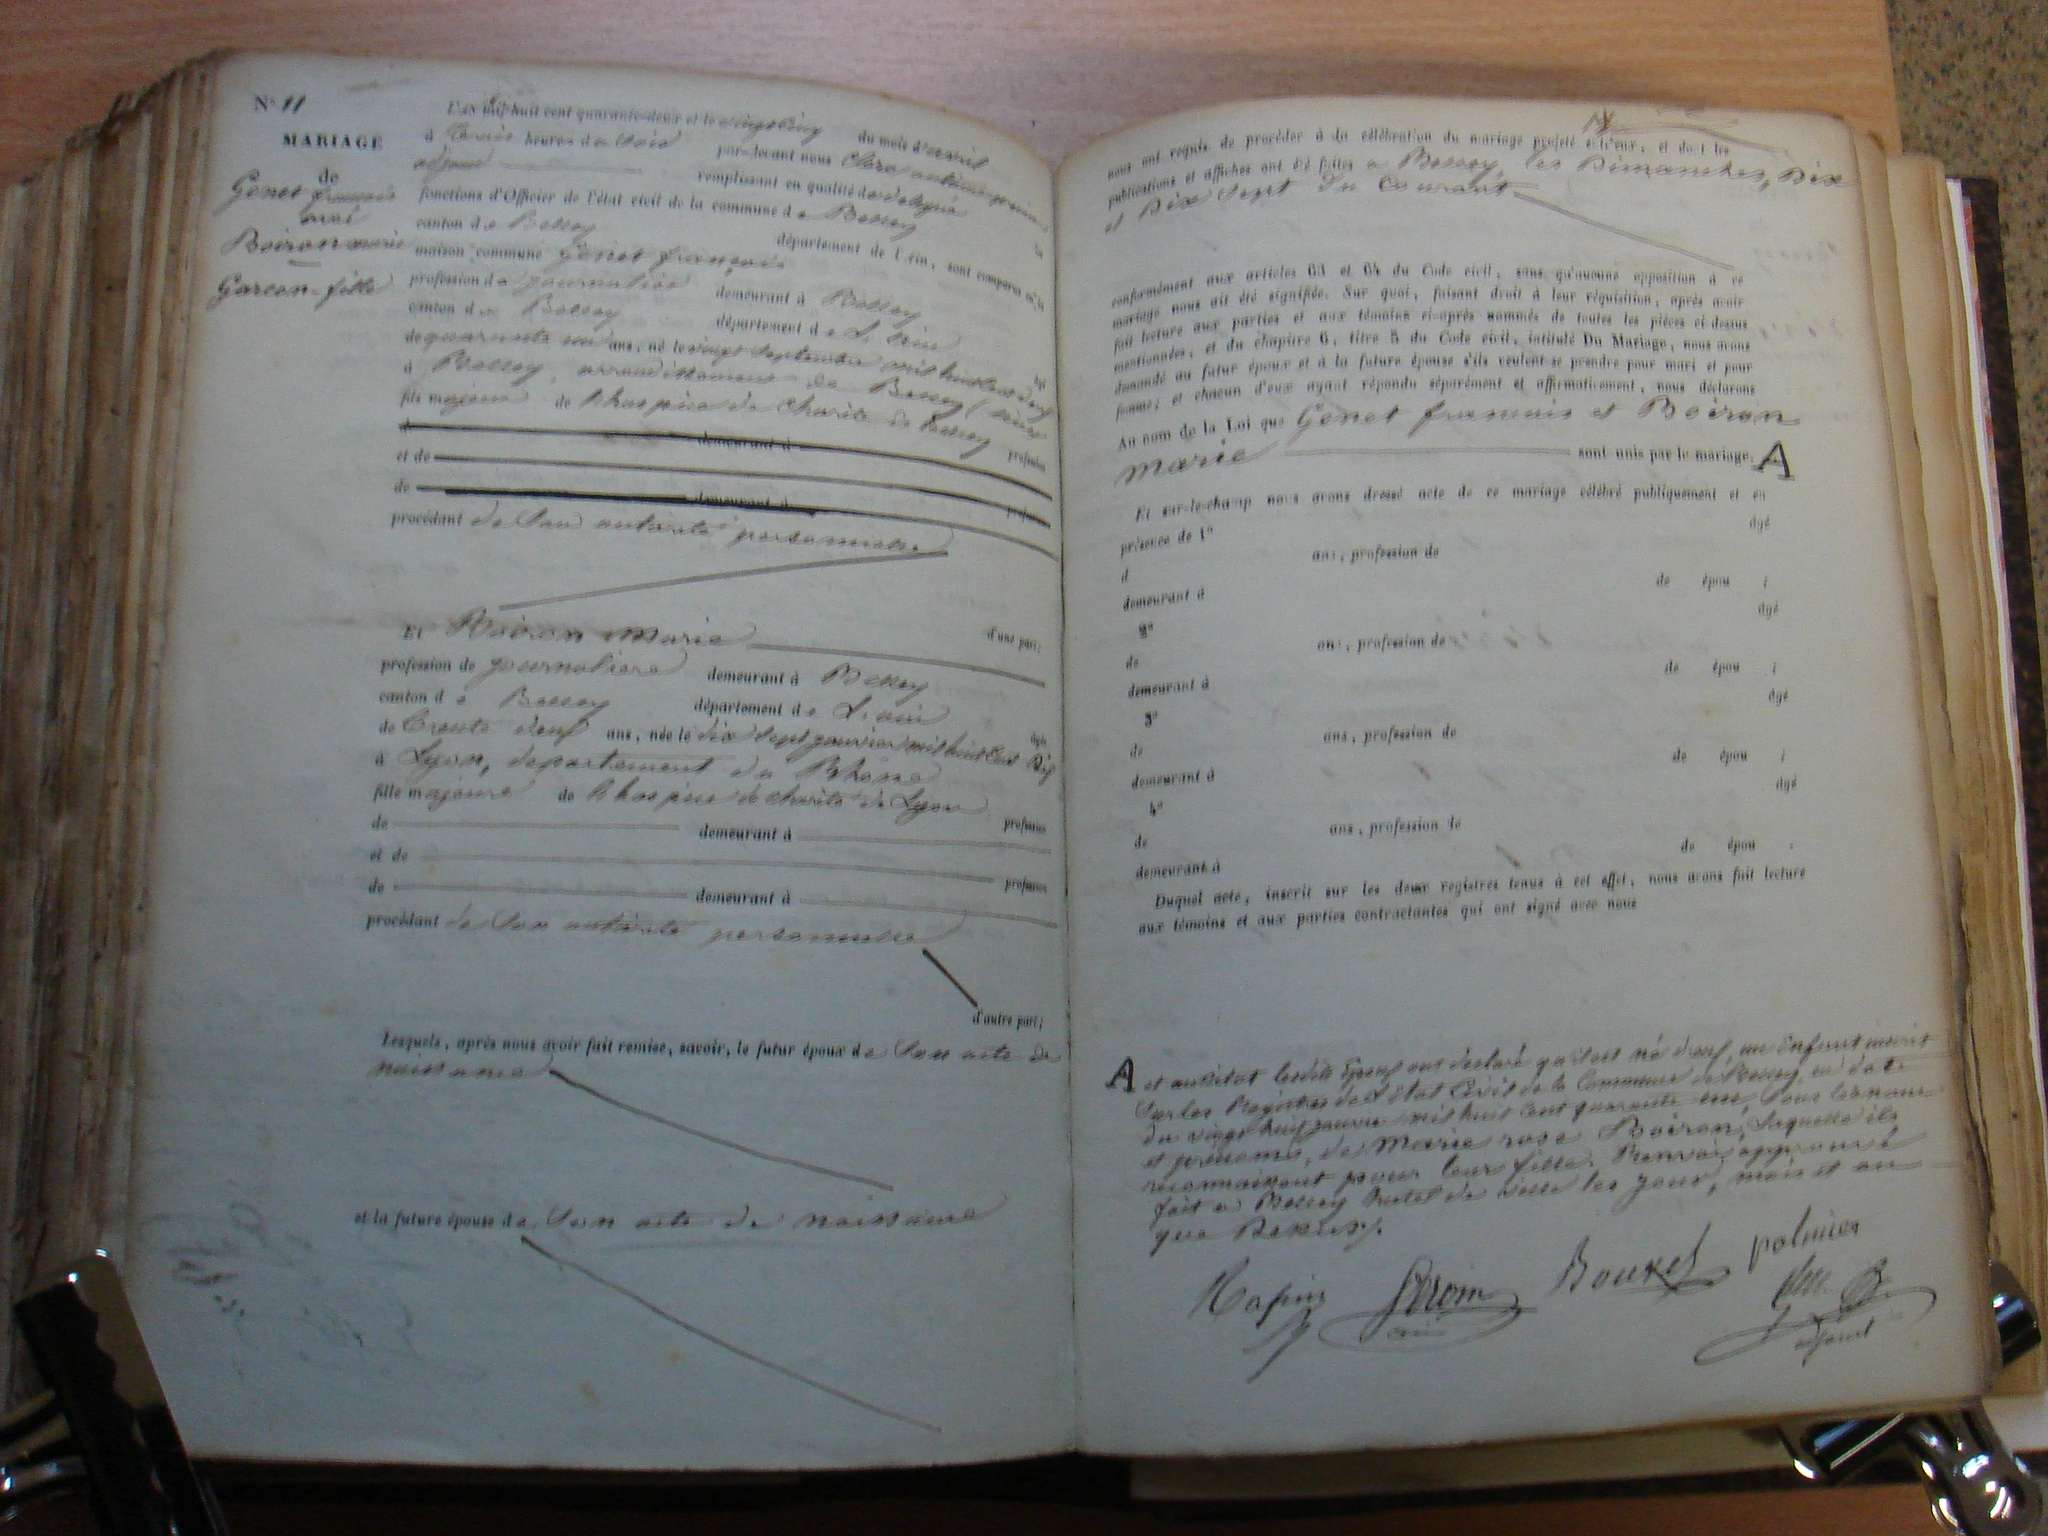 N° 11
MARIAGE
de
Genet françois
avec
Boiron marie
Garcon - fille
L'an mil huit cent quarante-deux et le vingt cinq du mois d'avril
à heures du Soir par-devant nous
adjoint remplissant en qualité de délégué les
fonctions d'Officier de l'état civil de la commune de
canton de département de l'Ain, sont comparus en la
maison commune Genet françois
profession de journalier demeurant à
canton de département de L'ain
de quarante un ans, né le vingt Septembre mil huit cent âgé
à arrondissement de
fils majeur de l'hospice de charité de profession
de demeurant à
et de profession
de demeurant à
procédant de Son autorité personnelle
d'une part;
Et Boiron Marie
profession de journaliere demeurant à
canton de département de L'ain
de Trente deux ans, née le dix Sept janvier mil huit Cent Dix âgée
à Lyon, département du Rhône
fille majeure de l'hospice de charité de Lyon profession
de demeurant à
et de profession
de demeurant à
procédant de Son autorité personnelle
d'autre part;
Lesquels, après nous avoir fait remise, savoir, le futur époux de Son acte de
naissance
et la future épouse de Son acte de naissance
nous ont requis de procéder à la célébration du mariage projeté entr'eux, et dont les
publications et affiches ont été faites à les Dimanches, Dix
et Dix Sept du Courant
conformément aux articles 63 et 64 du Code civil, sans qu'aucune opposition à ce
mariage nous ait été signifiée. Sur quoi, faisant droit à leur réquisition, après avoir
fait lecture aux parties et aux témoins ci-après nommés de toutes les pièces ci-dessus
mentionnées, et du chapitre 6, titre 5 du Code civil, intitulé Du Mariage, nous avons
demandé au futur époux et à la future épouse s'ils veulent se prendre pour mari et pour
femme; et chacun d'eux ayant répondu séparément et affirmativement, nous déclarons
Au nom de la Loi que Genet françois et Boiron
marie sont unis par le mariage. A
Et sur-le-champ nous avons dressé acte de ce mariage célébré publiquement et en
présence de 1° âgé
d ans, profession de
demeurant à de épou
2° âgé
de ans, profession de
demeurant à de épou
3° âgé
de ans, profession de
demeurant à de épou
4° âgé
de ans, profession de
demeurant à de épou
Duquel acte, inscrit sur les deux registres tenus à cet effet, nous avons fait lecture
aux témoins et aux parties contractantes qui ont signé avec nous
A et aussitot lesdits Epoux ont déclaré qu'il est né d'eux, un Enfant inscrit
Sur les Registres de L'état Civil de la Commune de en date
du vingt huit janvier mil huit Cent quarante un, Sous les noms
et prénoms, de Marie rose Boiron, Laquelle ils
reconnaissent pour leur fille. Renvoi approuvé
fait a hotel de ville les jour, mois et an
que Dessus.
Bouxet
adjoint